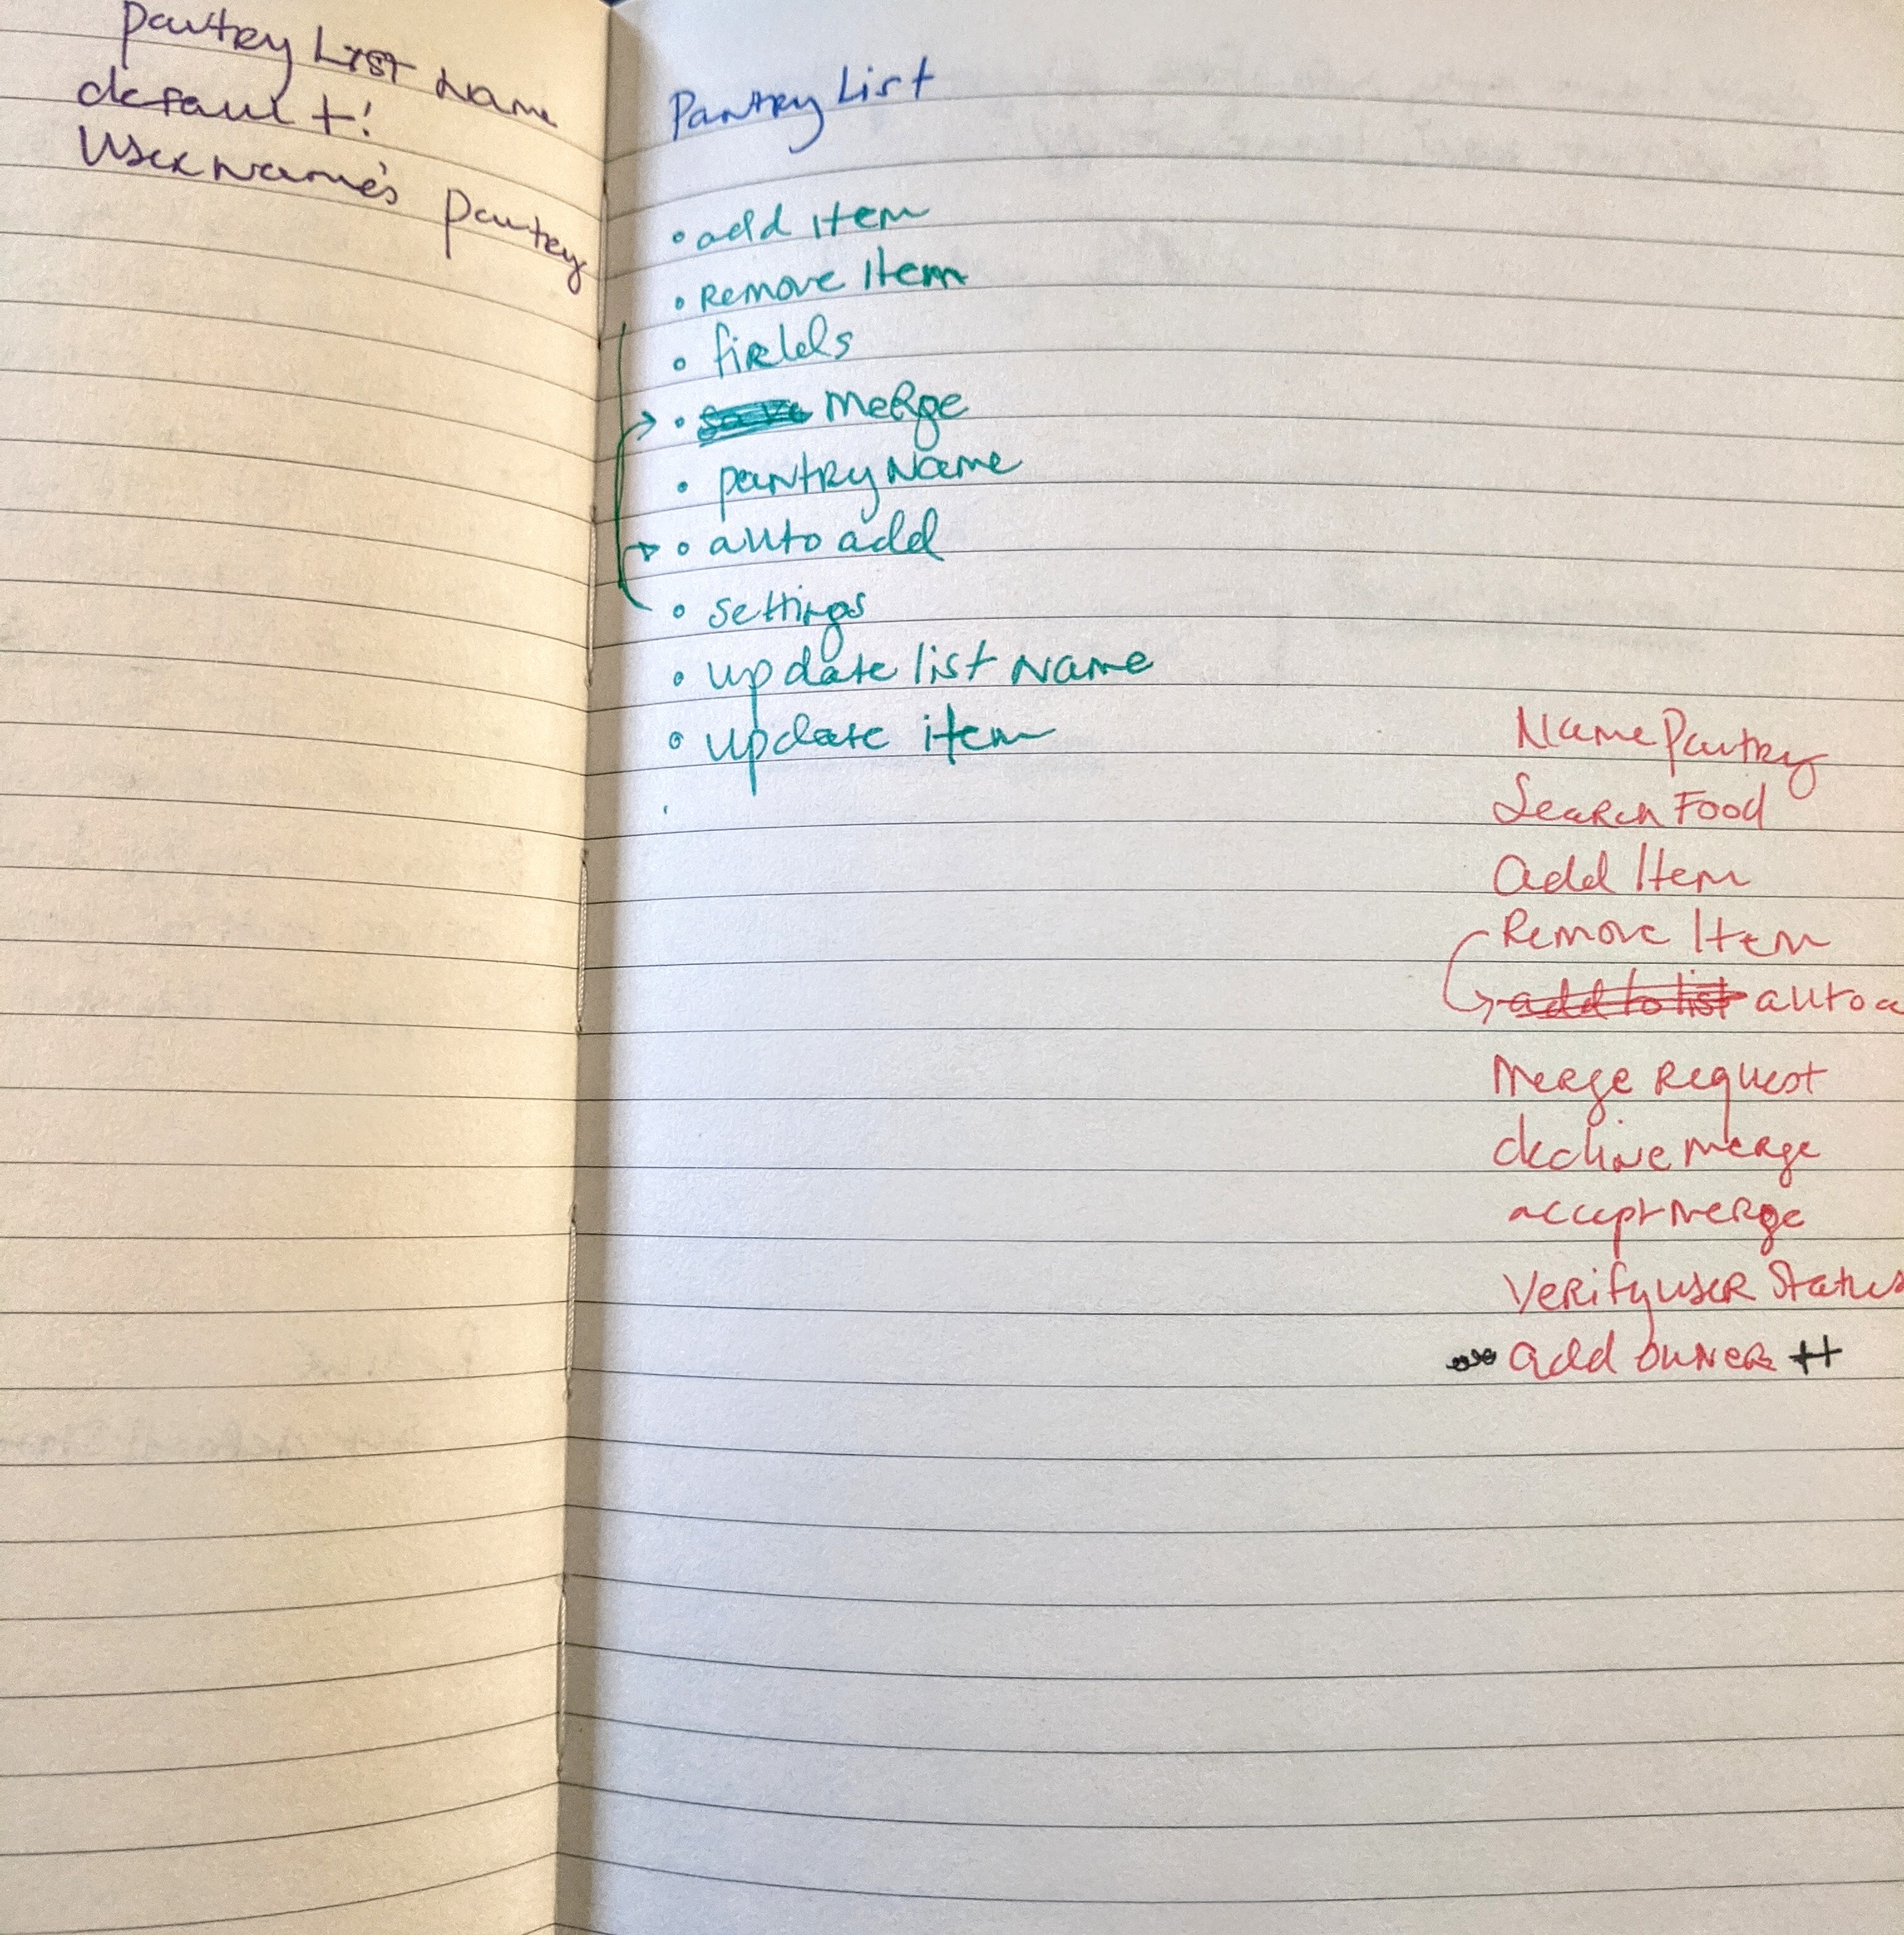 Pantry List Name
default!
UserName's Pantry
Pantry List
• add item
• Remove Item
• fields
• save Merge
• pantry Name
• auto add
• settings
• update list Name
• update item
Name Pantry
Search Food
add Item
Remove Item
add to list auto a
Merge Request
decline merge
accept Merge
Verify user Status
add owner ++